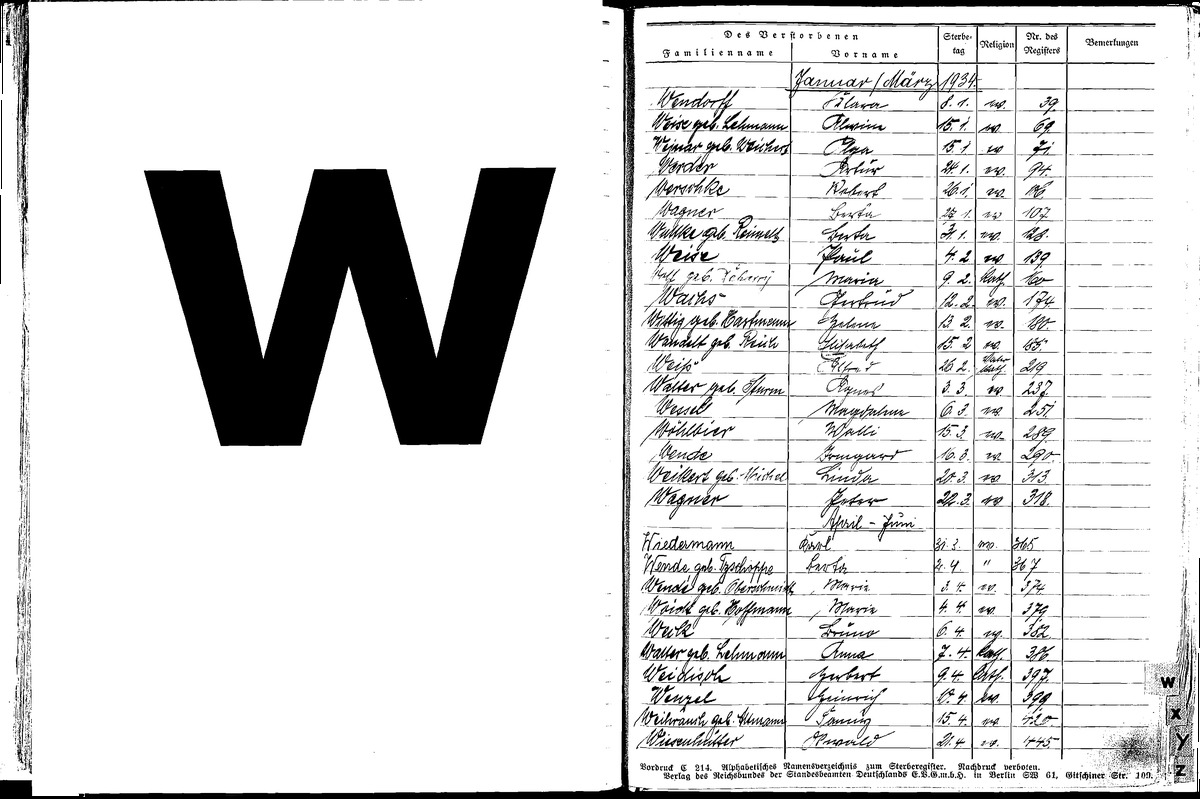 W
Des Verstorbenen Sterbe- Religion Nr. des Bemerkungen
Familienname Vorname tag Registers
Januar/März 1934.
Wendorff Klara 8. 1. ev. 39.
Weise geb. Lehmann Alwine 15. 1. ev 69
geb. Weichert Olga 15. 1 ev 71
Werder Artur 24. 1. ev. 94.
Werschke Robert 26. 1 ev.
Wagner Berta 1. ev 107
geb. Berta 1. ev.
Weise Paul 4. 2 ev 139
geb. Maria 9. 2. kath. 160
Wachs Gertrud 12. 2. ev. 174
Wittig geb. Hartmann Helene 13. 2. ev. 180.
Wandelt geb. Reich Elisabeth 15. 2 ev. 185.
Weiß Alfred 26. 2. 219
Walter geb. Sturm Agnes 3. 3. ev 237.
Wesel Magdalene 6. 3. ev. 251.
Wöhlbier Walli 15. 3. ev. 289.
Wende Irmgard 16. 3. ev. 290.
Weikert geb. Linda 20. 3. ev 313.
Wagner Peter 22. 3. ev 318.
April - Juni
Wiedermann Karl 31. 3. ev. 365
Wende geb. Tzschoppe Berta 2. 4. " 367
Wende geb. Oberschmidt Marie 3. 4. ev. 374
Woidt geb. Hoffmann Marie 4. 4. ev. 379
Weik Bruno 6. 4. ev. 382.
Walter geb. Lehmann Anna 7. 4. kath. 386.
Weidisch Herbert 9. 4. kath. 397.
Wenzel Heinrich 10. 4. ev. 399
Weihrauch geb. Fanny 15. 4. ev 420
Wiesenhütter Oswald 21. 4 ev. 445
Vordruck C 214. Alphabetisches Namensverzeichnis zum Sterberegister. Nachdruck verboten.
Verlag des Reichsbundes der Standesbeamten Deutschlands E.V.G.m.b.H. in Berlin SW 61, Gitschiner Str. 109.
W
X
Y
Z